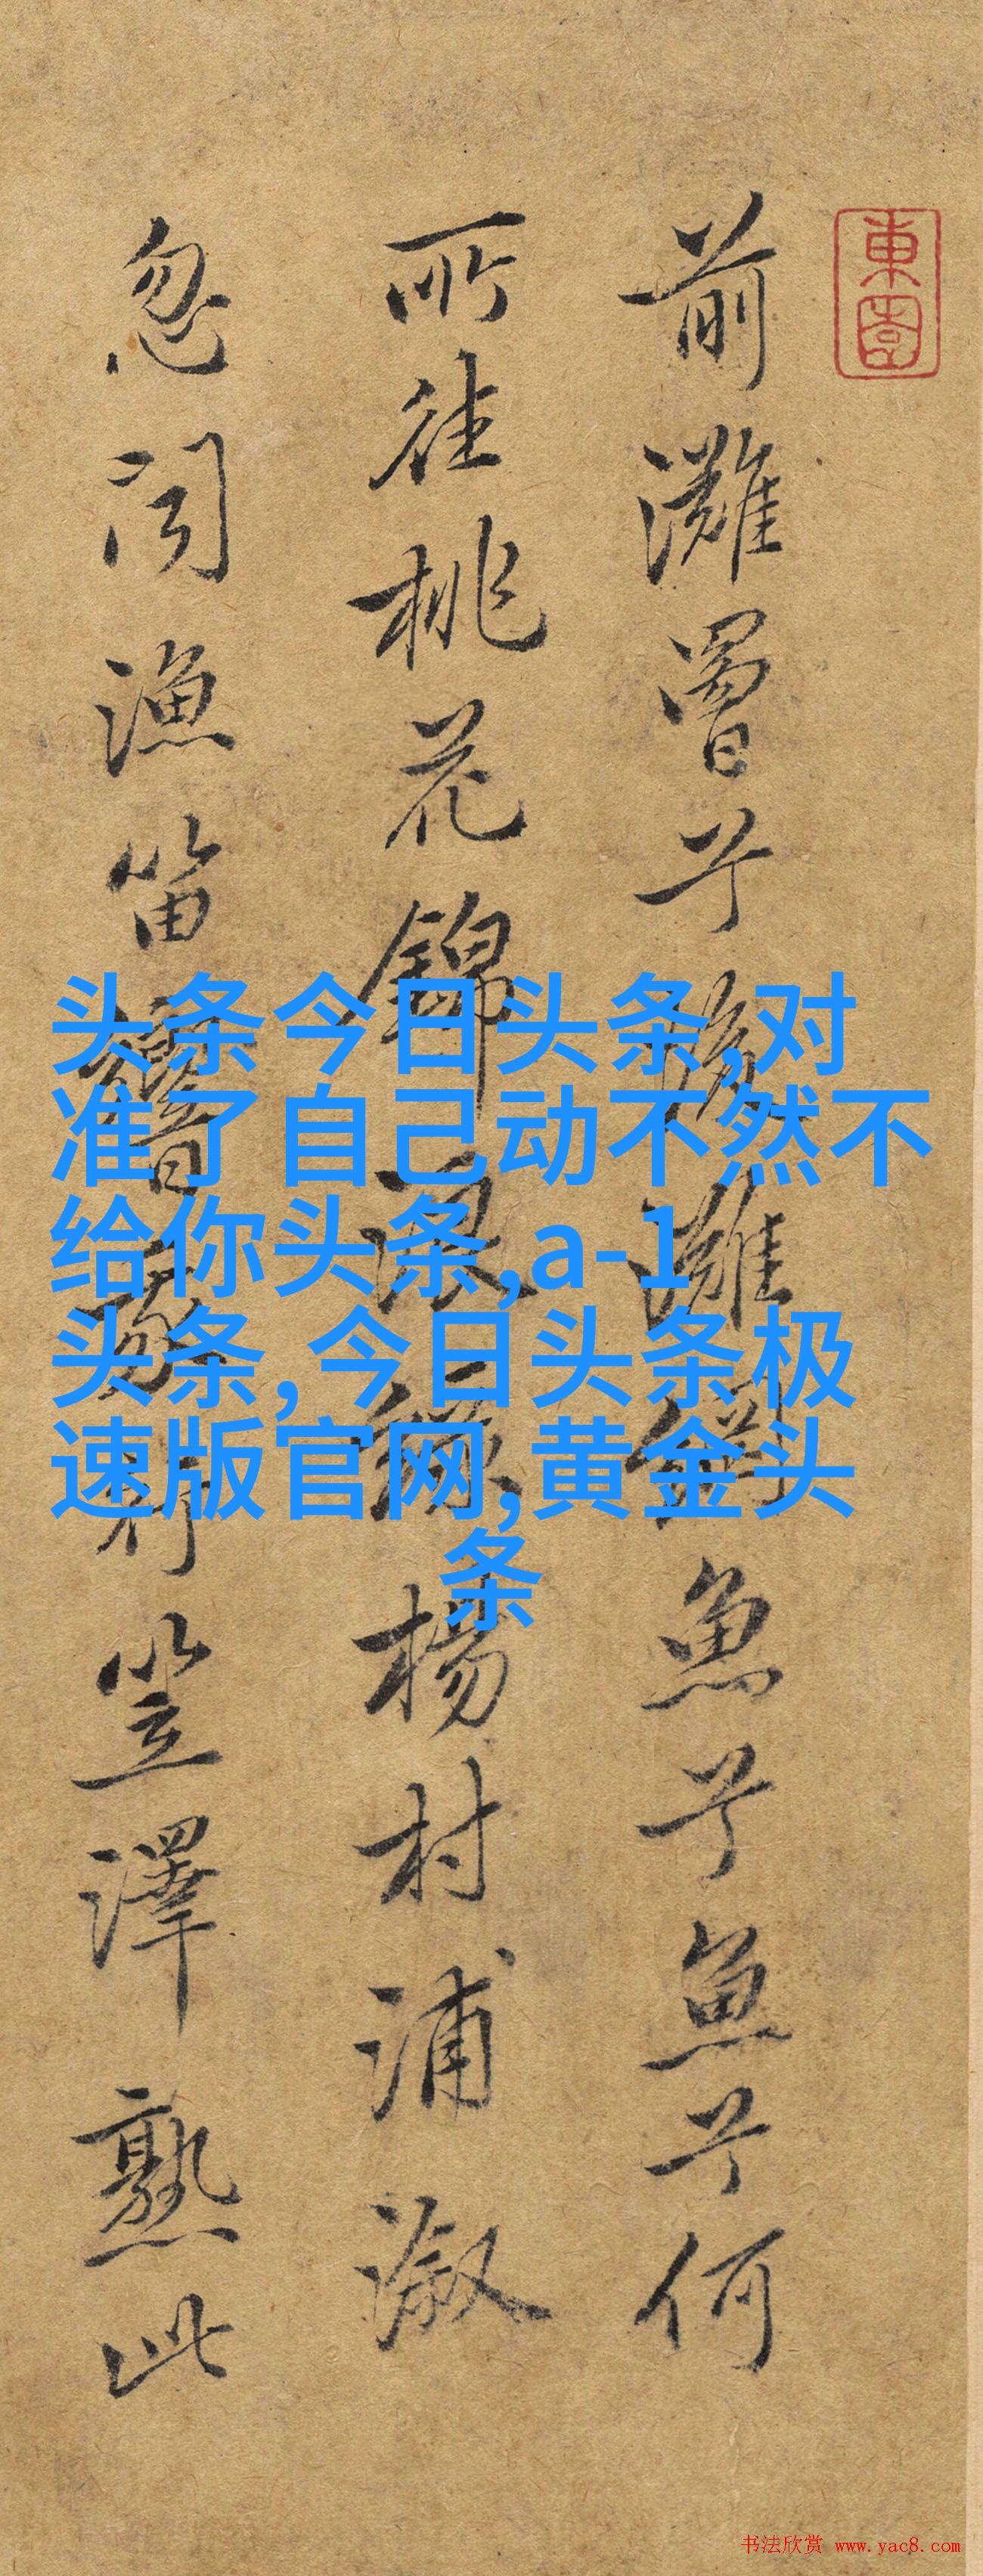 東園
前灘罾兮後灘釣魚兮魚兮何
所往桃花錦浪綠楊村浦溆
忽聞漁笛響歌行笠澤熟此
头条今日头条,对
准了自己动不然不
给你头条,a-1
头条,今日头条极
速版官网,黄金头
条
书法欣赏 www.yac8.com